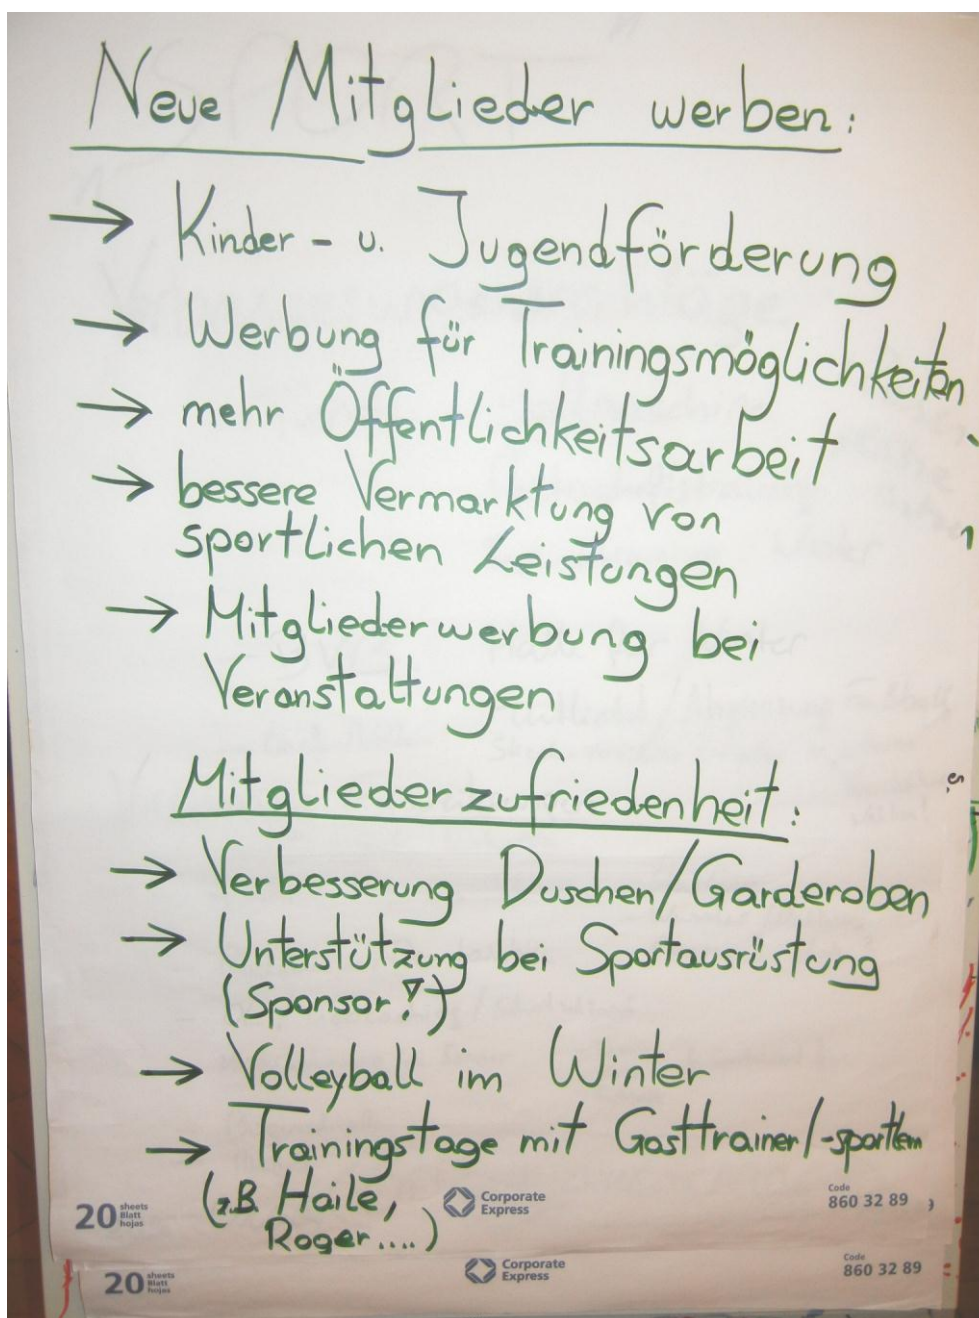 Neue Mitglieder werben:
→ Kinder- u. Jugendförderung
→ Werbung für Trainingsmöglichkeiten
→ mehr Öffentlichkeitsarbeit
→ bessere Vermarktung von
sportlichen Leistungen
→ Mitgliederwerbung bei
Veranstaltungen
Mitgliederzufriedenheit:
→ Verbesserung Duschen/Garderoben
→ Unterstützung bei Sportausrüstung
(Sponsor?)
→ Volleyball im Winter
→ Trainingstage mit Gasttrainer/-sportlern
(z.B. Haile,
Roger....)
20 sheets Blatt hojas
Corporate Express
Code 860 32 89
20 sheets Blatt hojas
Corporate Express
Code 860 32 89